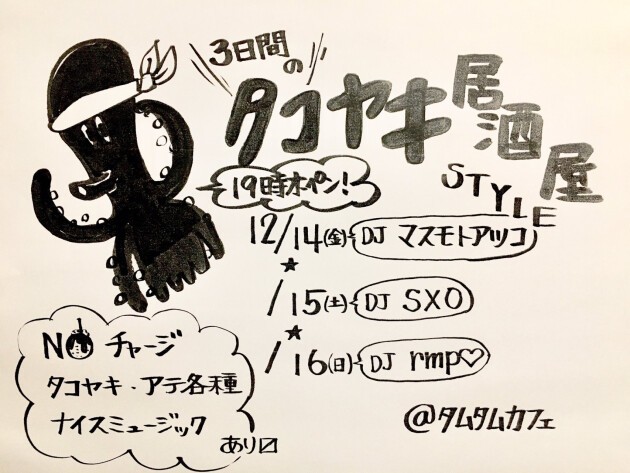 3日間の
タコヤキ居酒屋
STYLE
19時オペン!
12/14(金) DJ マスモトアツコ
★
/15(土) DJ SXO
★
/16(日) DJ rmp♡
NO チャージ
タコヤキ・アテ各種
ナイスミュージック
あり〼
@タムタムカフェ